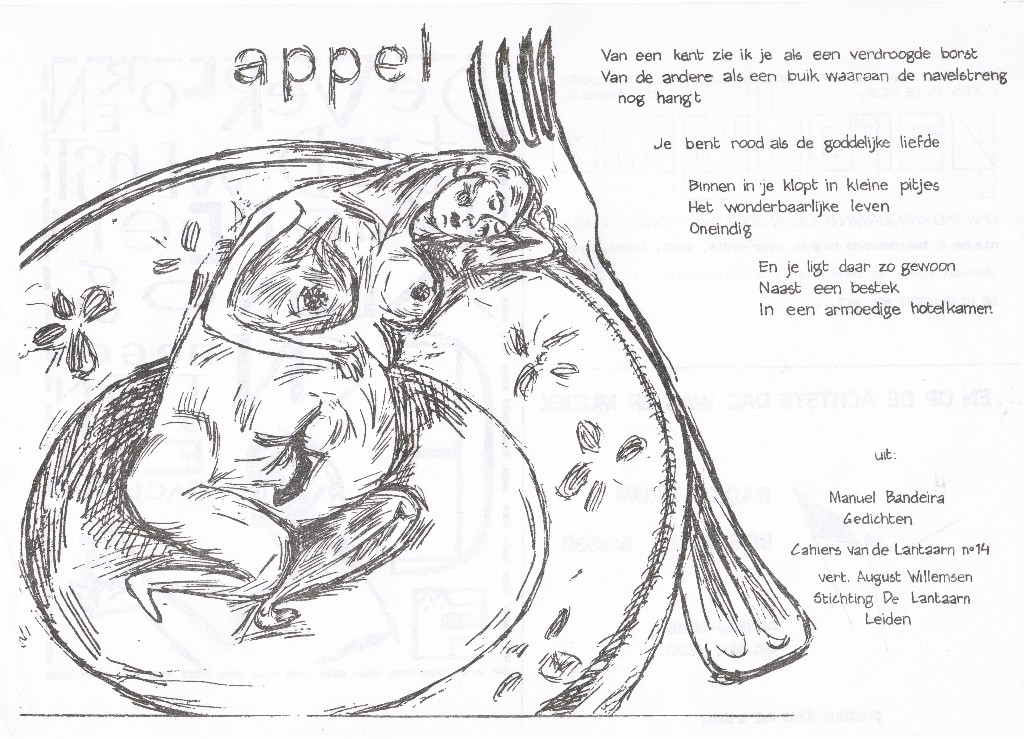 appel
Van een kant zie ik je als een verdroogde borst
Van de andere als een buik waaraan de navelstreng
nog hangt
Je bent rood als de goddelijke liefde
Binnen in je klopt in kleine pitjes
Het wonderbaarlijke leven
Oneindig
En je ligt daar zo gewoon
Naast een bestek
In een armoedige hotelkamer.
uit:
Manuel Bandeira
Gedichten
Cahiers van de Lantaarn nº14
vert. August Willemsen
Stichting De Lantaarn
Leiden